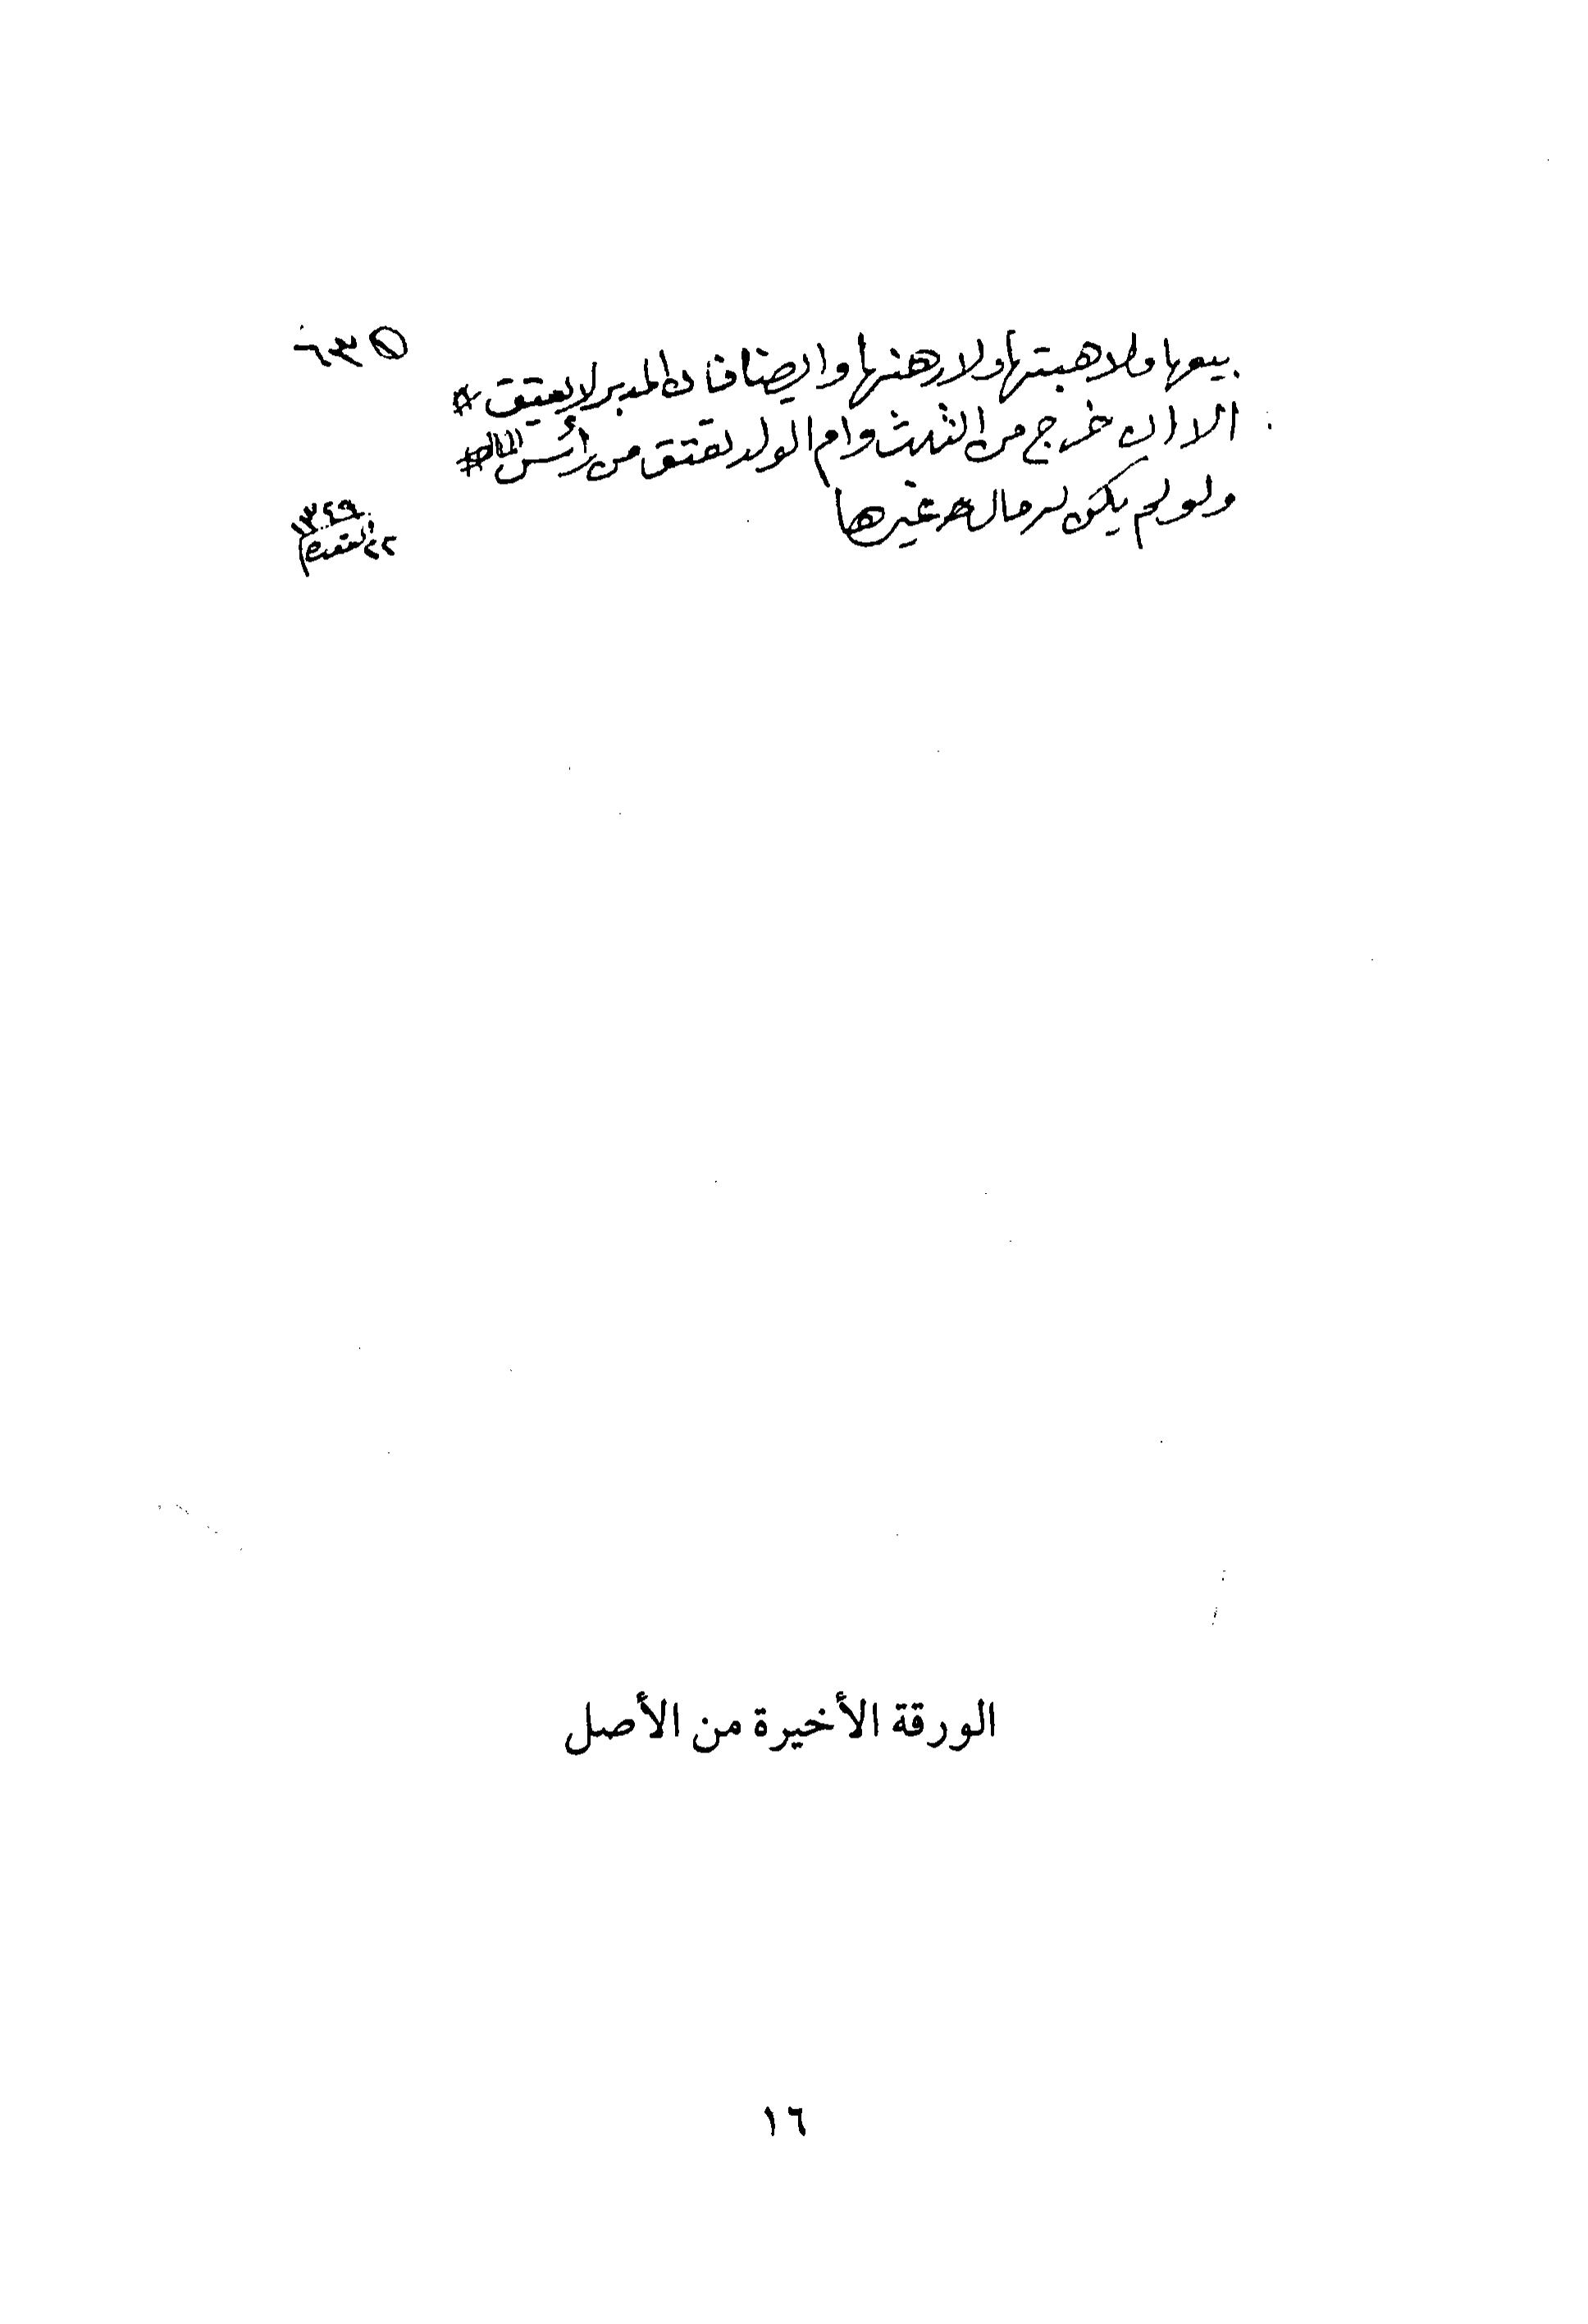 بيعها ولا هبتها ولا رهنها وايضا فان المدبر لا يعتق
الا ان خرج من الثلث وام الولد تعتق من رأس المال
ولو لم يكن له مال غيرها
١٣٢٩
٢٢ القعدة
الورقة الأخيرة من الأصل
١٦